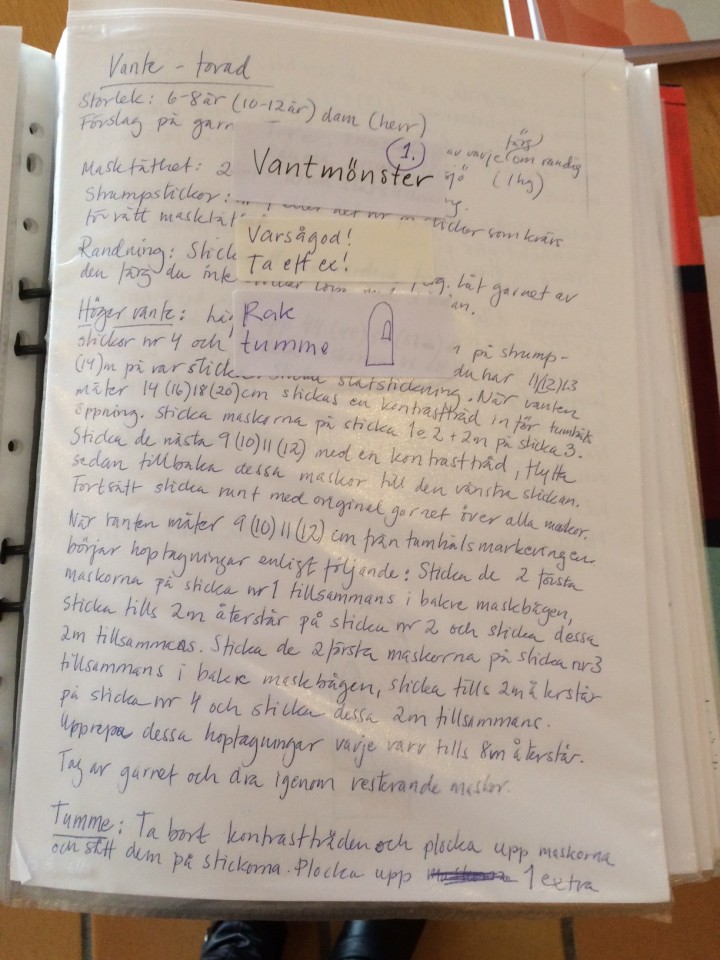 Vante - tovad
Storlek: 6-8år (10-12år) dam (herr)
Förslag på garn
färg
av varje om randig
1.
Vantmönster
Masktäthet: 2
(1hg)
Strumpstickor:
stickor som krävs
för rätt masktät
Varsågod!
Ta ett ex!
Randning: Stick
låt garnet av
den färg du inte
Rak
tumme
Höger vante:
stickor nr 4 och
på strump-
(14)m på var sticka
slätstickning. När vanten
du har 11(12)13
mäter 14(16)18(20)cm stickas en kontrasttråd inför tumhåls
öppning. Sticka maskorna på sticka 1 o 2 + 2m på sticka 3.
Sticka de nästa 9(10)11(12) med en kontrasttråd, flytta
sedan tillbaka dessa maskor till den vänstra stickan.
Fortsätt sticka runt med originalgarnet över alla maskor.
När vanten mäter 9(10)11(12) cm från tumhålsmarkeringen
börjar hoptagningar enligt följande: Sticka de 2 första
maskorna på sticka nr 1 tillsammans i bakre maskbågen,
sticka tills 2m återstår på sticka nr 2 och sticka dessa
2m tillsammans. Sticka de 2 första maskorna på sticka nr 3
tillsammans i bakre maskbågen, sticka tills 2m återstår
på sticka nr 4 och sticka dessa 2m tillsammans.
Upprepa dessa hoptagningar varje varv tills 8m återstår.
Tag av garnet och dra igenom resterande maskor.
Tumme: Ta bort kontrasttråden och plocka upp maskorna
och sätt dem på stickorna. Plocka upp 1 extra